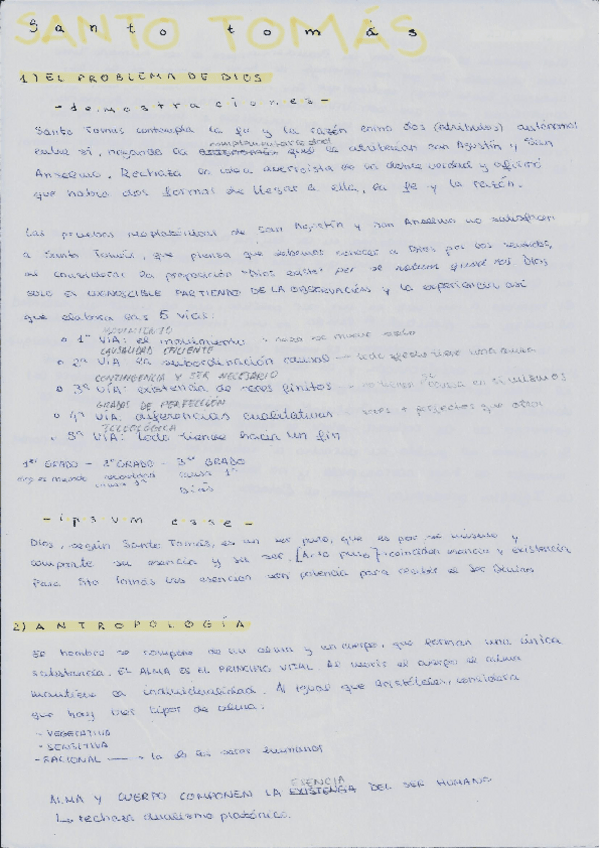 SANTO TOMÁS
Santo tomás
1) EL PROBLEMA DE DIOS
-demostraciones-
Santo Tomás contempla la fe y la razón como dos (atributos) autónomos
entre sí, negando la que le atribuían San Agustín y San
Anselmo. Rechaza la idea averroísta de la doble verdad y afirmó
que había dos formas de llegar a ella, la fe y la razón.
Las pruebas neoplatónicas de San Agustín y San Anselmo no satisfacen
a Santo Tomás, que piensa que debemos conocer a Dios por los sentidos,
la proposición "Dios existe" per se Dios
SOLO ES COGNOSCIBLE PARTIENDO DE LA OBSERVACIÓN y la experiencia, así
que elabora las 5 vías:
MOVIMIENTO
1ª VÍA: el movimiento → nada se mueve solo
CAUSALIDAD EFICIENTE
2ª VÍA la subordinación causal → todo efecto tiene una causa
CONTINGENCIA Y SER NECESARIO
3ª VÍA: existencia de seres finitos → no tienen su causa en sí mismos
GRADOS DE PERFECCIÓN
4ª VÍA: diferencias cualitativas seres + perfectos que otros
TELEOLÓGICA
5ª VÍA: todo tiende hacia un fin
1er GRADO - 2º GRADO - 3er GRADO
causa 1ª
Dios
-ipsum esse-
Dios, según Santo Tomás, es un ser puro, que es por sí mismo y
comparte su esencia y su ser. [Acto puro] → coinciden esencia y existencia
Para Sto Tomás las esencias son potencia para recibir el Ser Divino
2) ANTROPOLOGÍA
El hombre se compone de un alma y un cuerpo, que forman una única
substancia. EL ALMA ES EL PRINCIPIO VITAL. Al morir el cuerpo el alma
mantiene la individualidad. Al igual que Aristóteles, considera
que hay tres tipos de alma:
- VEGETATIVA
- SENSITIVA
- RACIONAL → la de los seres humanos
ESENCIA
ALMA Y CUERPO COMPONEN LA EXISTENCIA DEL SER HUMANO
↳ rechaza dualismo platónico.